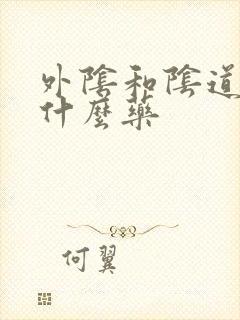 外陰和陰道
什麼藥
何翼